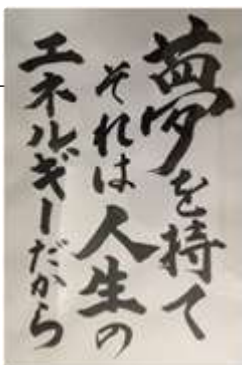 夢を持て
それは人生の
エネルギーだから